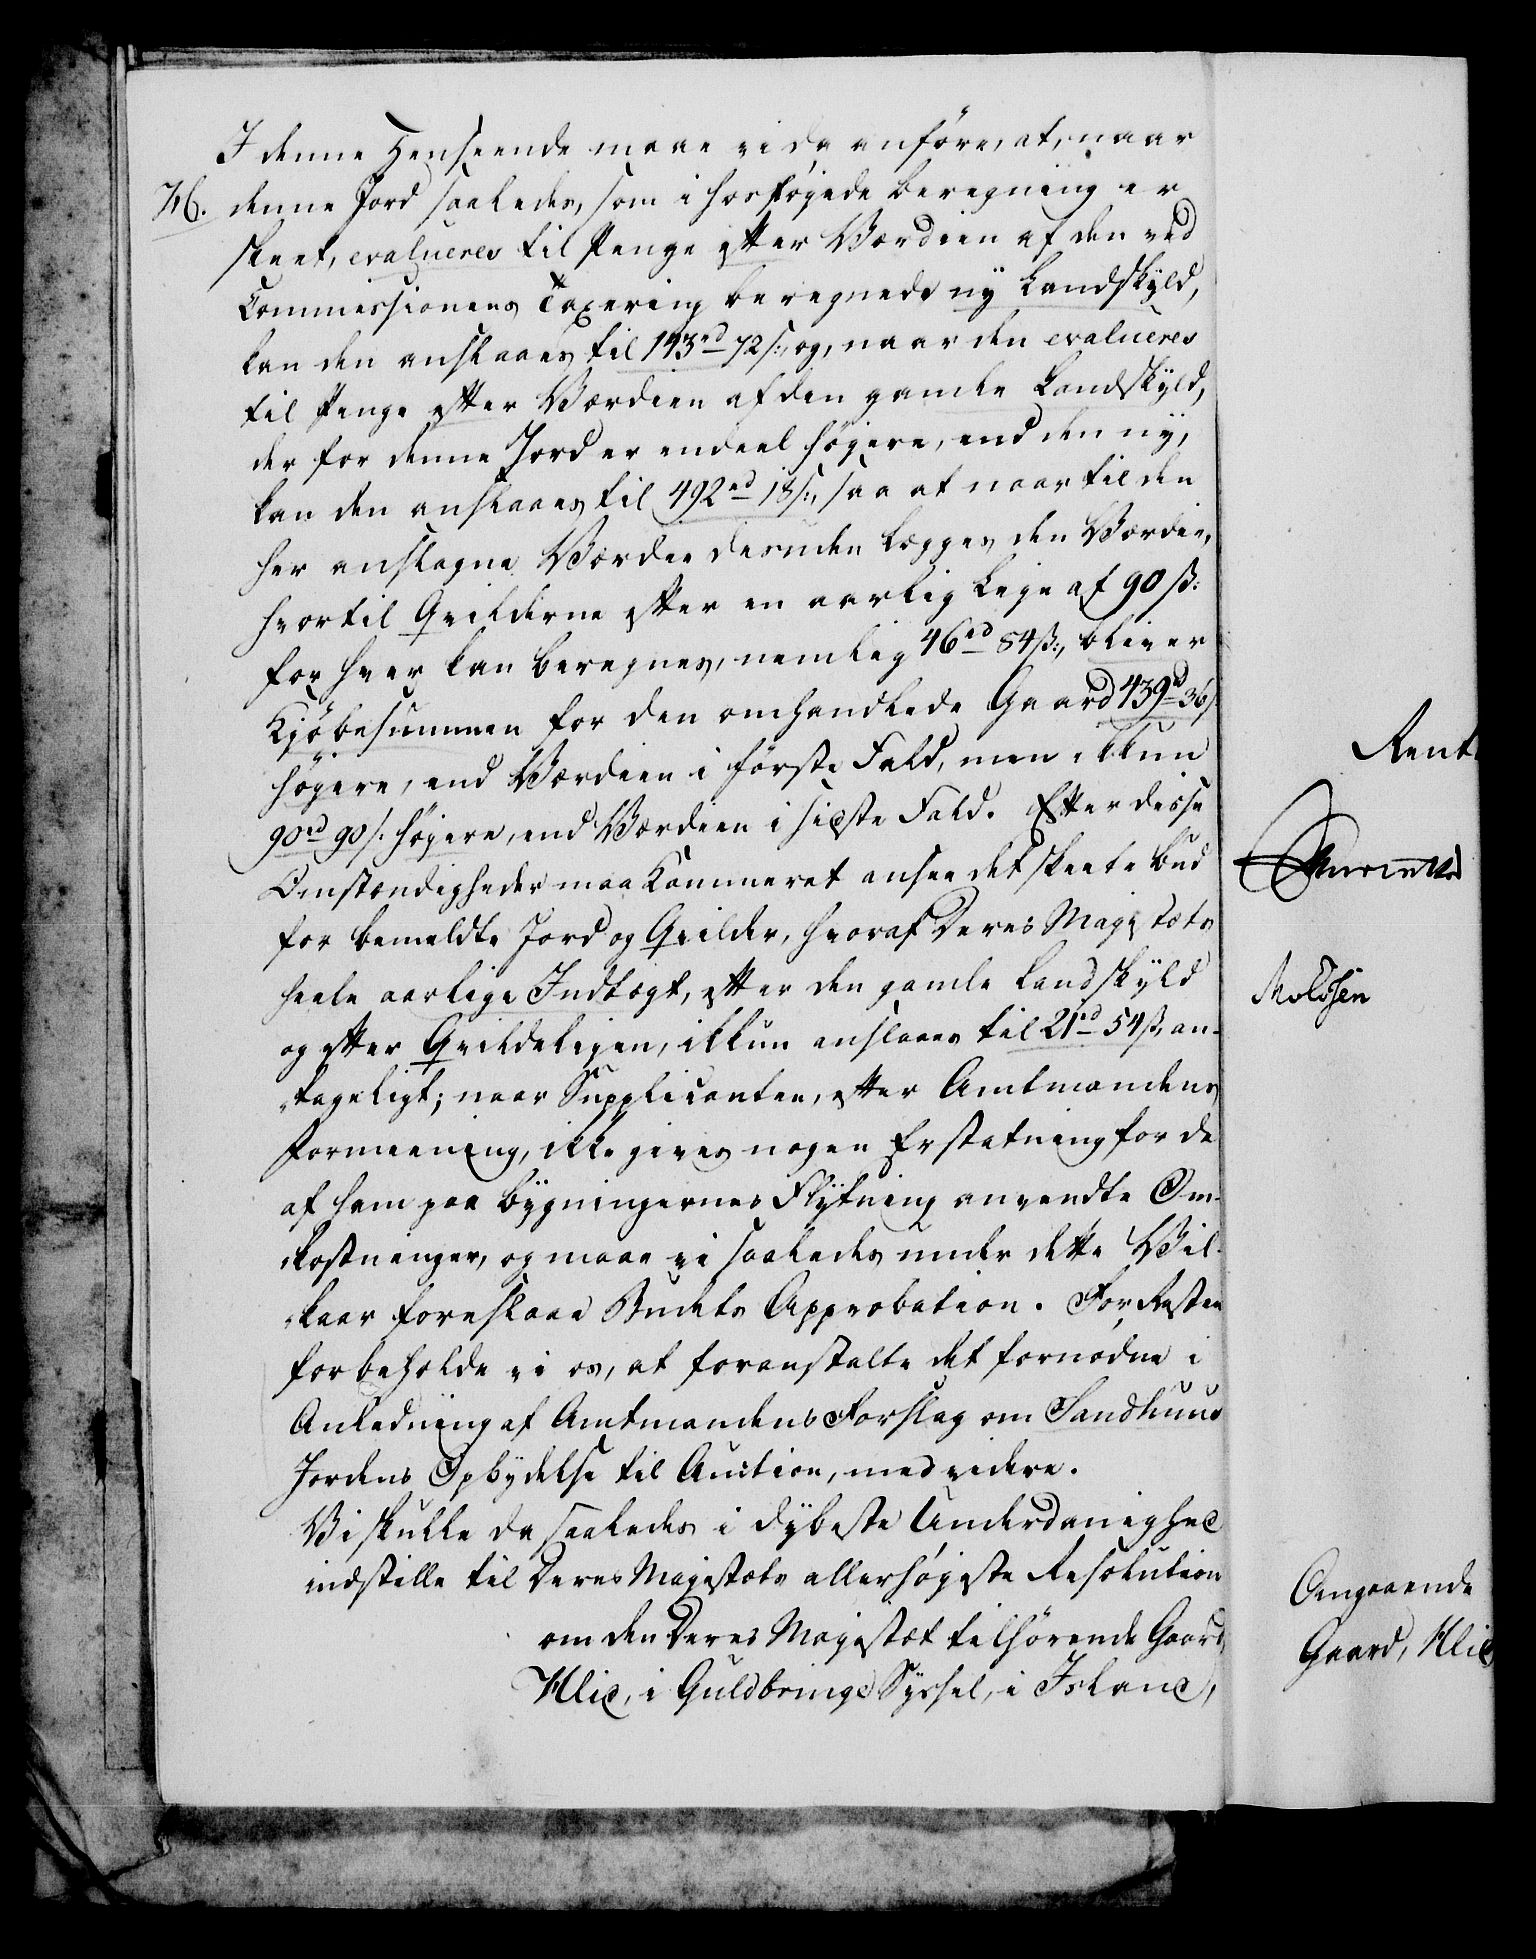 I denne Henseende maae vi da anføre, at, naar
H. denne Jord saaledes, som i hosføjede Beregning er
skeet, evalueres til Penge efter Værdien af den ved
Commissionens Taxering beregnede ny Landskyld,
kan den anslaaes til 143rd 72 s:, og, naar den evalueres
til Penge efter Værdien af den gamle Landskyld,
der for denne Jord er endeel højere, end den ny,
kan den anslaaes til 492rd 18 s:, saa at naar til den
her anslagne Værdie desuden lægges den Værdie,
hvortil Qvilderne efter en aarlig Leje af 90 ß:
for hver kan beregnes, nemlig 46rd 84 ß:, bliver
Kjøbesummen for den omhandlede Gaard 439rd 36 s
højere, end Værdien i første Fald, men ikkun
90rd 90 s. højere, end Værdien i sidste Fald. Efter disse
Omstændigheder maa Kammeret ansee det skeete Bud
for bemeldte Jord og Qvilder, hvoraf Deres Majestæts
heele aarlige Indtægt, efter den gamle Landskyld
og efter Qvildelejen, ikkun anslaaes til 21rd 54 ß, an-
tageligt; naar Supplicanten, efter Amtmandens
Formeening, ikke gives nogen Erstatning for de
af ham paa Bygningernes Flytning anvendte Om-
kostninger, og maae vi saaledes under dette Vil-
kaar foreslaae Budets Approbation. For Resten
forbeholde vi os, at foranstalte det fornødne i
Anledning af Amtmandens Forslag om Sandhuus
Jordens Opbydelse til Auction, med videre.
Vi skulle da saaledes i dybeste Underdanighed
indstille til Deres Majestæts allerhøjeste Resolution
om den Deres Majestæt tilhørende Gaard,
Hlid, i Guldbringe Syssel, i Island,
Rent
Molssen
Angaaende
Gaard, Hlid